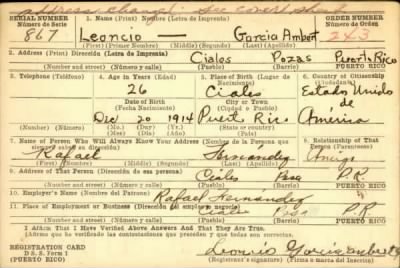 address change: See cover sheet
SERIAL NUMBER 1. Name (Print) Nombre (Letra de Imprenta) ORDER NUMBER
Número de Serie Número de Orden
867 Leoncio — Garcia Ambert 243
(First) Primer Nombre (Middle) (Segundo) (Last) (Apellido)
2. Address (Print) Dirección (Letra de Imprenta)
Ciales Pozas Puerto Rico
Number (Número) Street (Calle) Town (Pueblo) Barrio (Barrio) PUERTO RICO
3. Telephone (Teléfono) 4. Age in Years (Edad) 5. Place of Birth (Lugar de Nacimiento) 6. Country of Citizenship (Ciudadanía)
26 Ciales Estados Unidos
Date of Birth (Fecha Nacimiento) City or Town (Ciudad o Pueblo) de
Dic 20 1914 Puerto Rico América
Number (Número) (Mo.) (Mes) (Day) (Día) (Yr.) (Año) State or country (Estado o país)
7. Name of Person Who Will Always Know Your Address (Nombre de Persona que siempre sabrá su dirección) 8. Relationship of That Person (Parentesco)
Rafael Hernández Amigo
(First) (Primer Nombre) (Middle) (Segundo) (Last) (Apellido)
9. Address of That Person (Dirección de esa persona)
Ciales Pozas P.R.
Number (Número) Street (Calle) Town (Pueblo) Barrio (Barrio) PUERTO RICO
10. Employer's Name (Nombre del Patrono)
Rafael Hernández
11. Place of Employment or Business (Dirección del empleo o negocio)
Ciales Pozas P.R.
Number (Número) Street (Calle) Town (Pueblo) Barrio (Barrio) PUERTO RICO
I Affirm That I Have Verified Above Answers And That They Are True.
(Afirmo que he verificado las contestaciones que preceden y que todas son correctas).
REGISTRATION CARD
D. S. S. Form 1 Leoncio Garcia Ambert
(PUERTO RICO) (Registrant's signature) (Firma o marca del Inscrito)